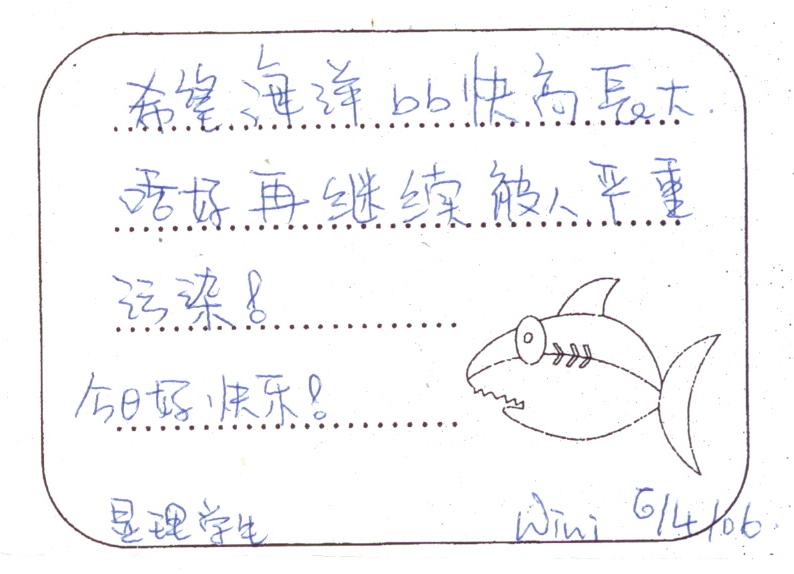 希望海洋bb快高長大.
唔好再继续被人严重
污染!
今日好快乐!
显理学生 Wini 6/4/06.